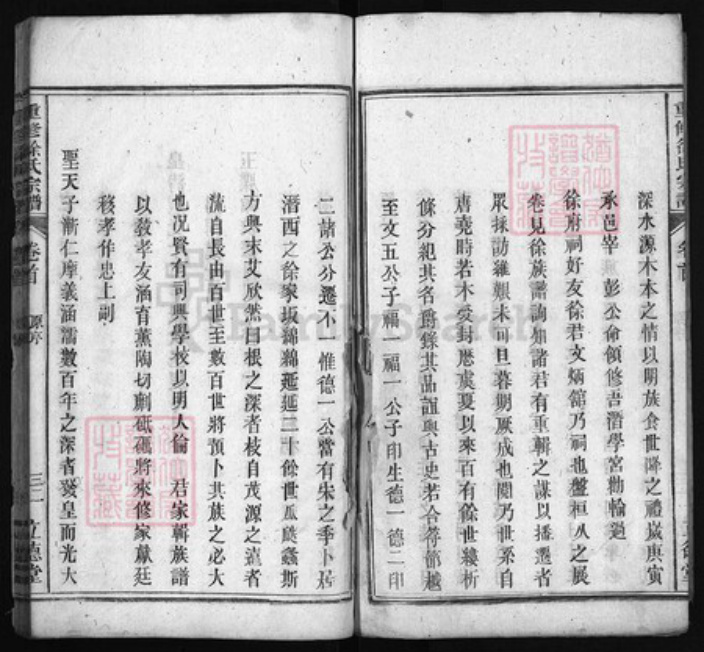 深水源木本之情以明族食世降之禮歲庚寅
承邑宰　彭公命領修吾潛學宮勸輸過
徐府祠好友徐君文炳舘乃祠也盤桓久之展
卷見徐族譜詢知諸君有重輯之謀以播遷者
眾採訪維艱未可旦暮期厥成也閱乃世系自
唐堯時若木受封歷虞夏以來百有餘世縷析
條分紀其名爵錄其品諡與古史若合符節越
至文五公子福一福一公子印生德一德二印
二諸公分遷不一惟德一公當有宋之季卜居
潛西之徐家坂綿綿延延二十餘世瓜瓞螽斯
方興未艾欣然曰根之深者枝自茂源之遠者
流自長由百世至數百世將預卜其族之必大
也况賢有司興學校以明人倫　君家輯族譜
以敦孝友涵育薰陶切劘砥礪將來修家獻廷
移孝作忠上副
聖天子漸仁摩義涵濡數百年之深者發皇而光大
重修徐氏宗譜
卷首
原序
三二
立德堂